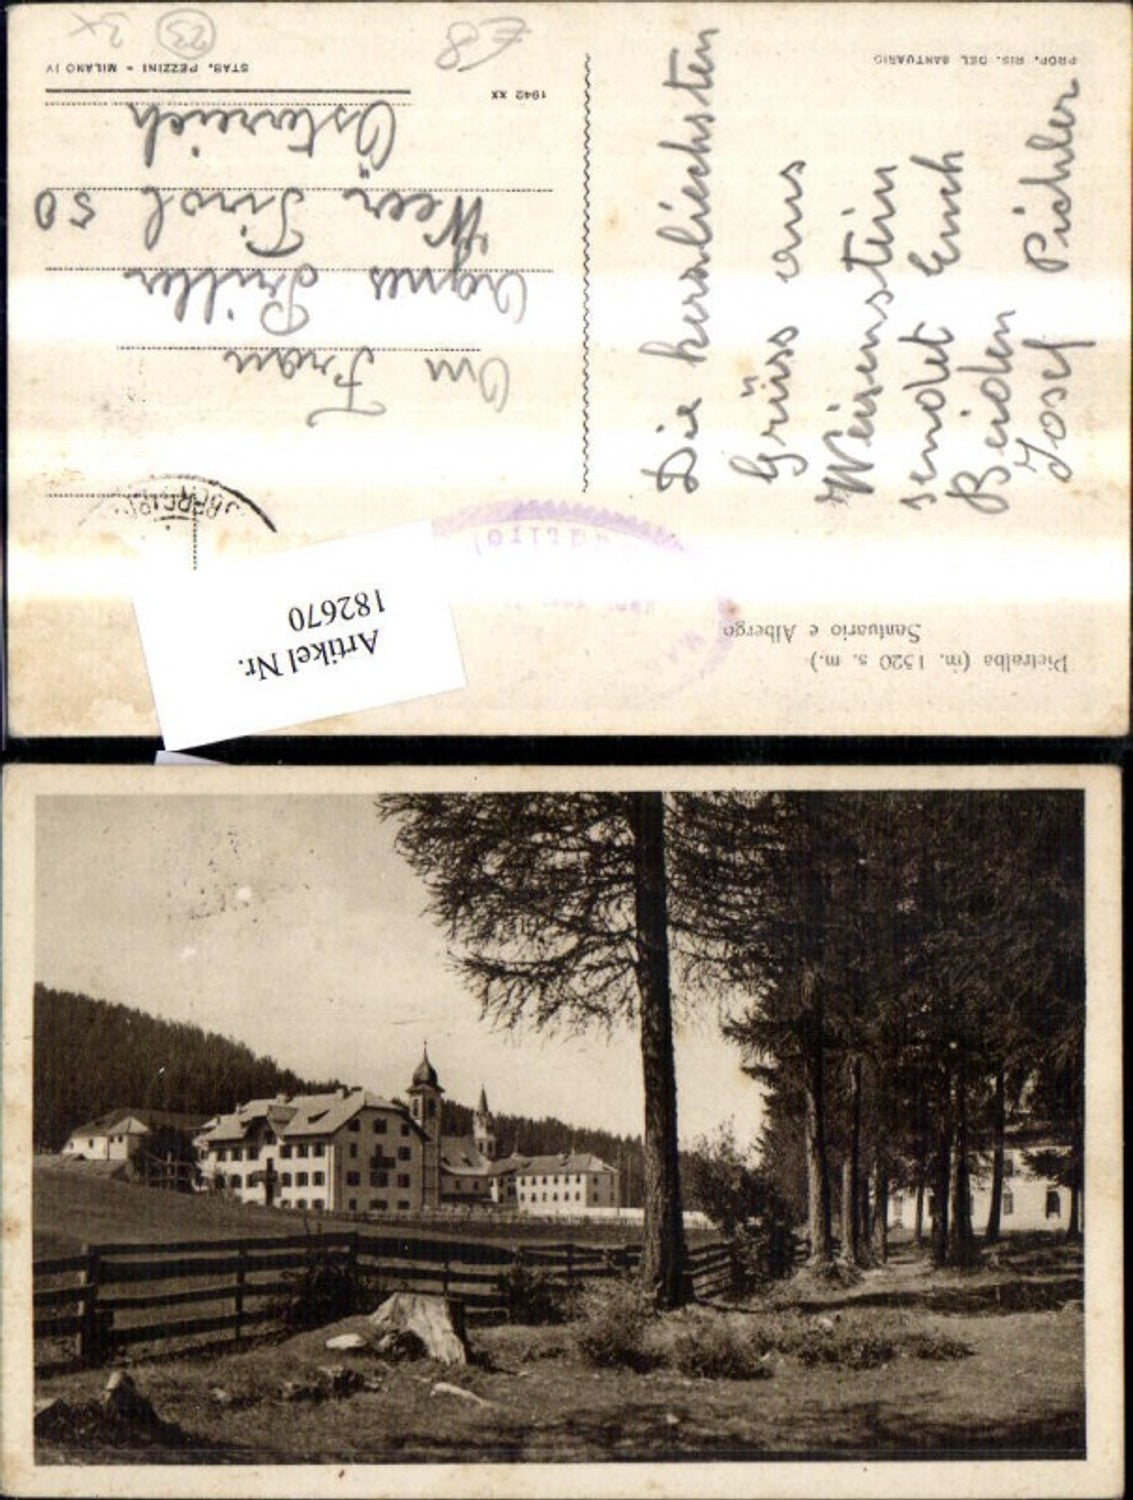 Pietralba (m. 1520 s. m.)
Santuario e Albergo
Die herzliechsten
Grüss aus
Weisenstein
sendet Euch
Beiden
Josef Pichler
PROP. RIS. DEL SANTUARIO
An
Frau
Agnes Priller
Weer Tirol 50
Österreich
1942 XX
STAB. PEZZINI - MILANO IV
E8
23
3x
Artikel Nr.
182670